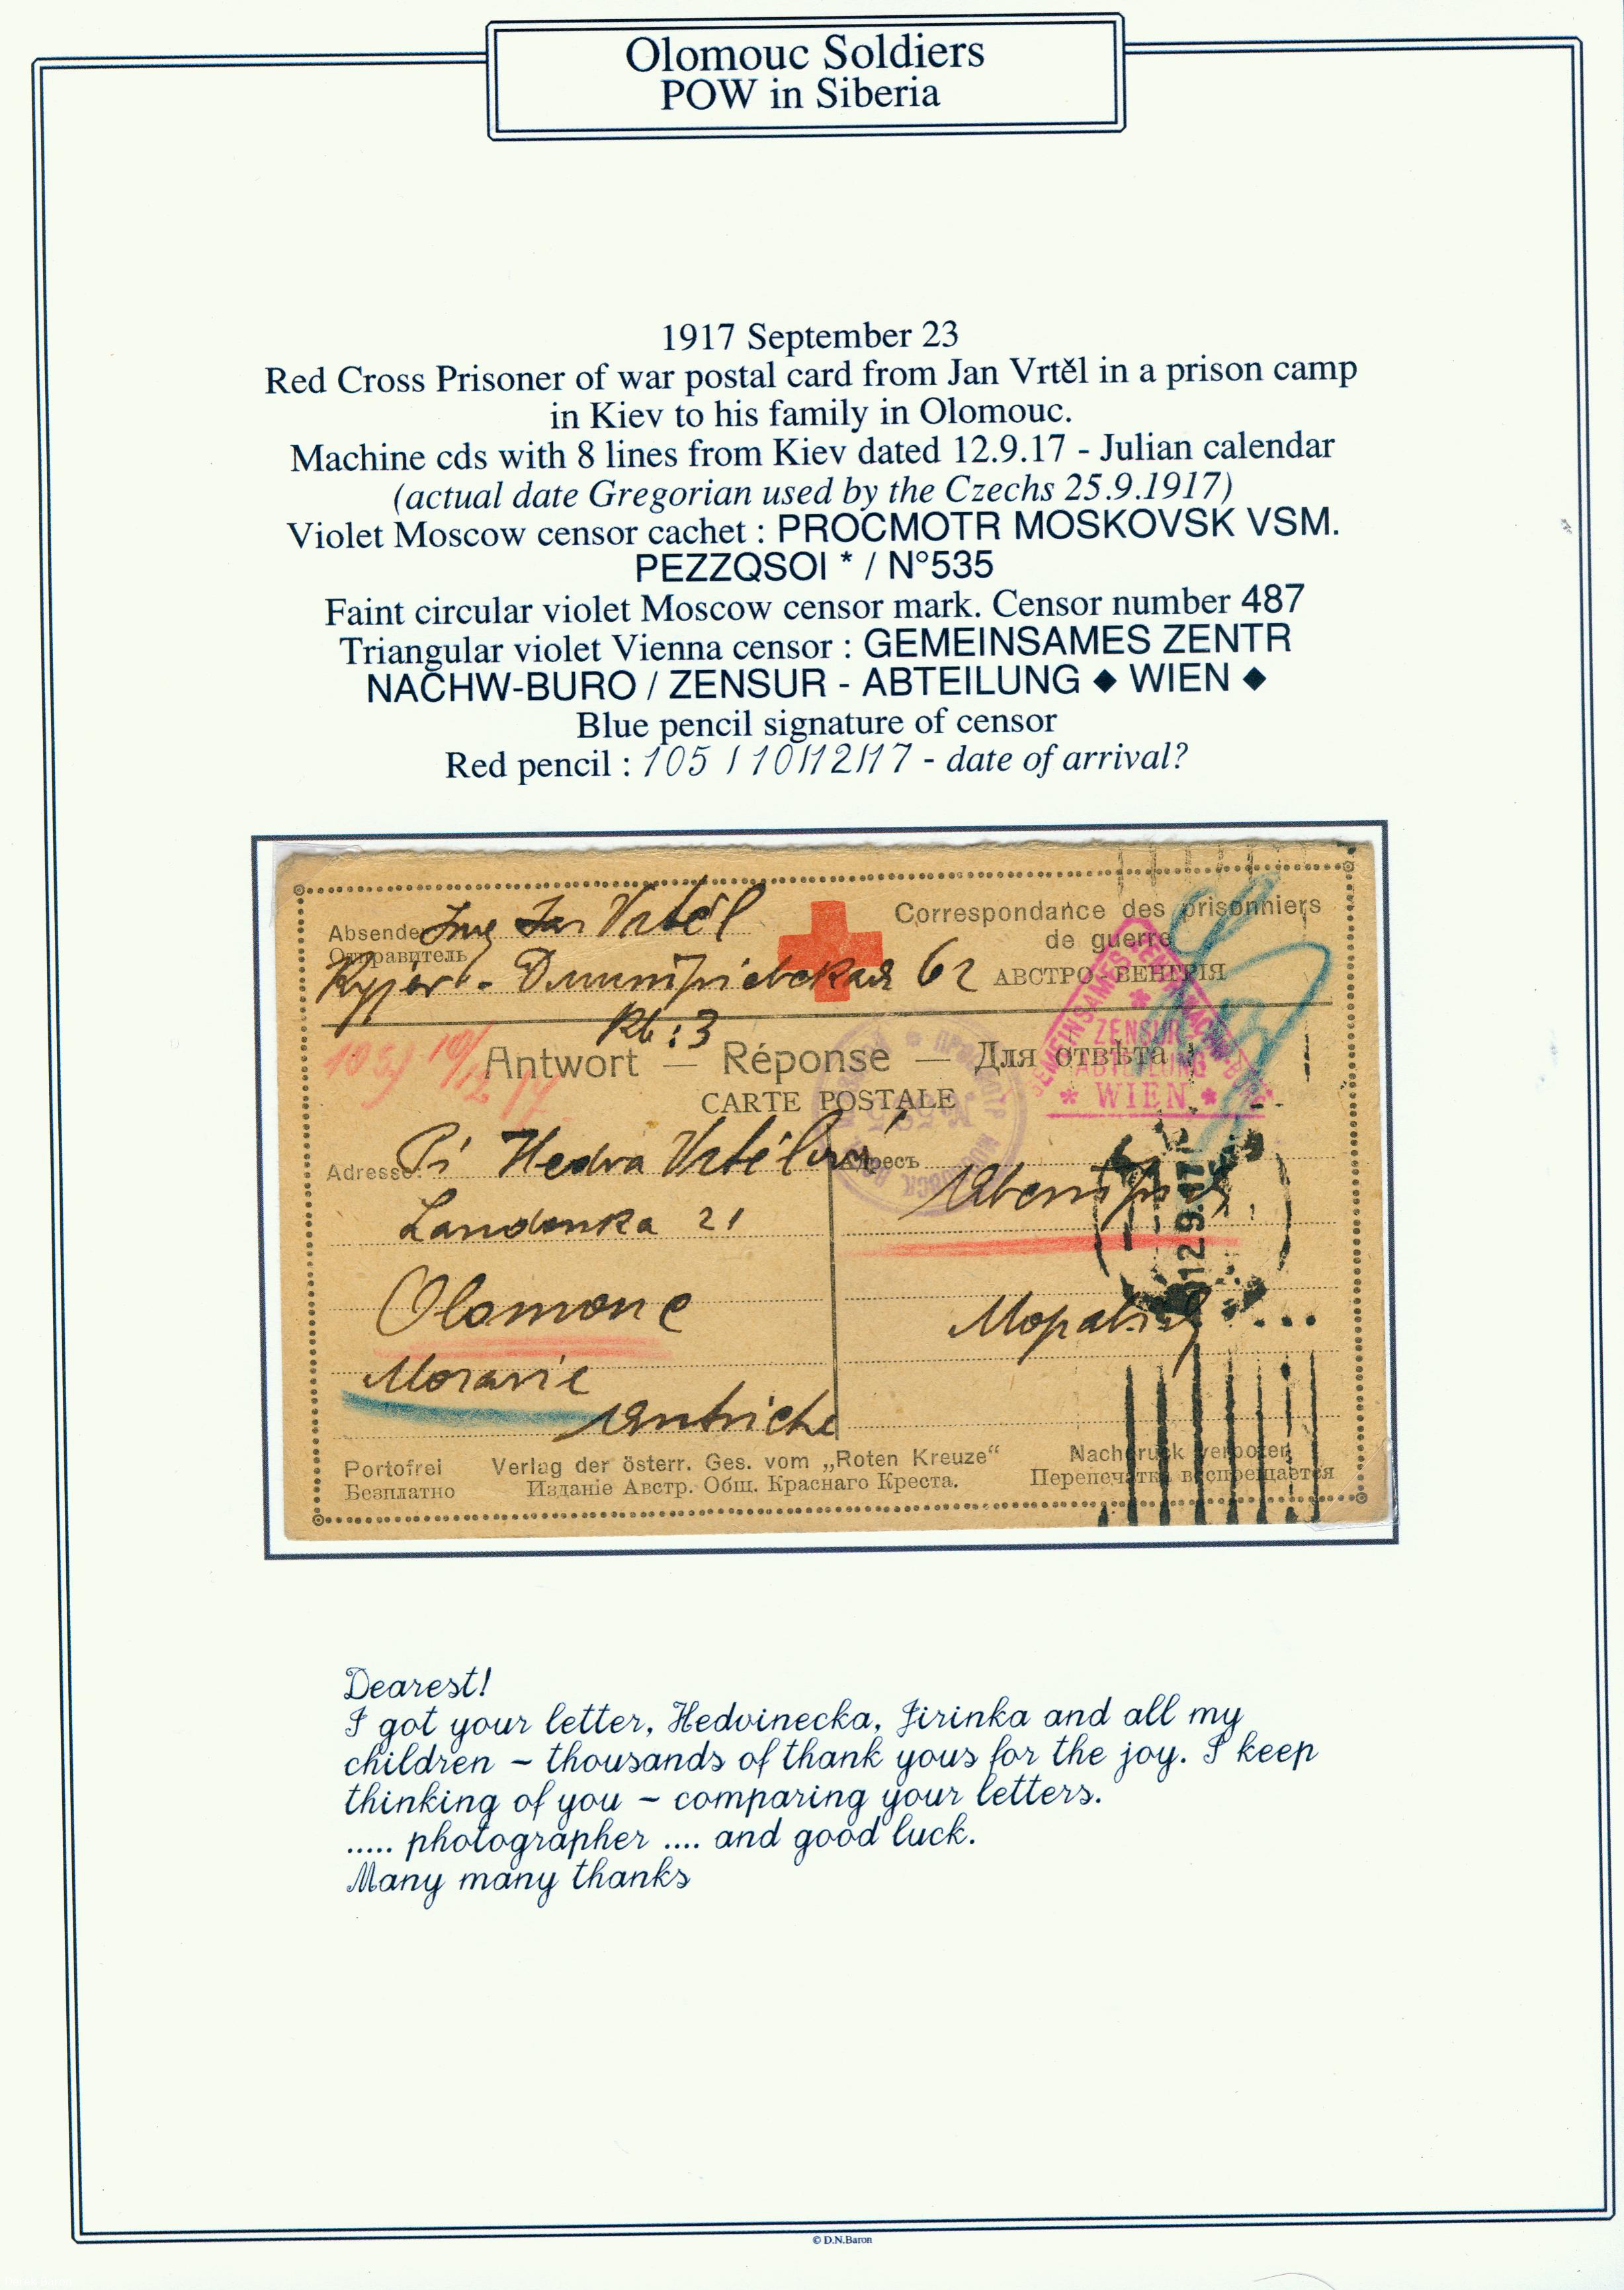 Olomouc Soldiers
POW in Siberia
1917 September 23
Red Cross Prisoner of war postal card from Jan Vrtěl in a prison camp
in Kiev to his family in Olomouc.
Machine cds with 8 lines from Kiev dated 12.9.17 - Julian calendar
(actual date Gregorian used by the Czechs 25.9.1917)
Violet Moscow censor cachet : PROCMOTR MOSKOVSK VSM.
PEZZQSOI * / N°535
Faint circular violet Moscow censor mark. Censor number 487
Triangular violet Vienna censor : GEMEINSAMES ZENTR
NACHW-BURO / ZENSUR - ABTEILUNG ◆ WIEN ◆
Blue pencil signature of censor
Red pencil : 105 / 10/12/17 - date of arrival?
Absender Ing Jan Vrtěl
Отправитель
Correspondance des prisonniers
de guerre
АВСТРО-ВЕНГРІЯ
62
10/12 17
Antwort — Réponse — Для отвѣта
CARTE POSTALE
ZENSUR-
ABTEILUNG
* WIEN *
Adresse: Pí Hedva Vrtělová
Адресъ
Landenka 21
Olomouc
Moravie
Autriche
Моравія
12.9.17
Portofrei
Безплатно
Verlag der österr. Ges. vom „Roten Kreuze“
Изданіе Австр. Общ. Краснаго Креста.
Nachdruck verboten
Перепечатка воспрещается
Dearest!
I got your letter, Hedvinecka, Jirinka and all my
children ~ thousands of thank yous for the joy. I keep
thinking of you ~ comparing your letters.
..... photographer .... and good luck.
Many many thanks
© D.N.Baron